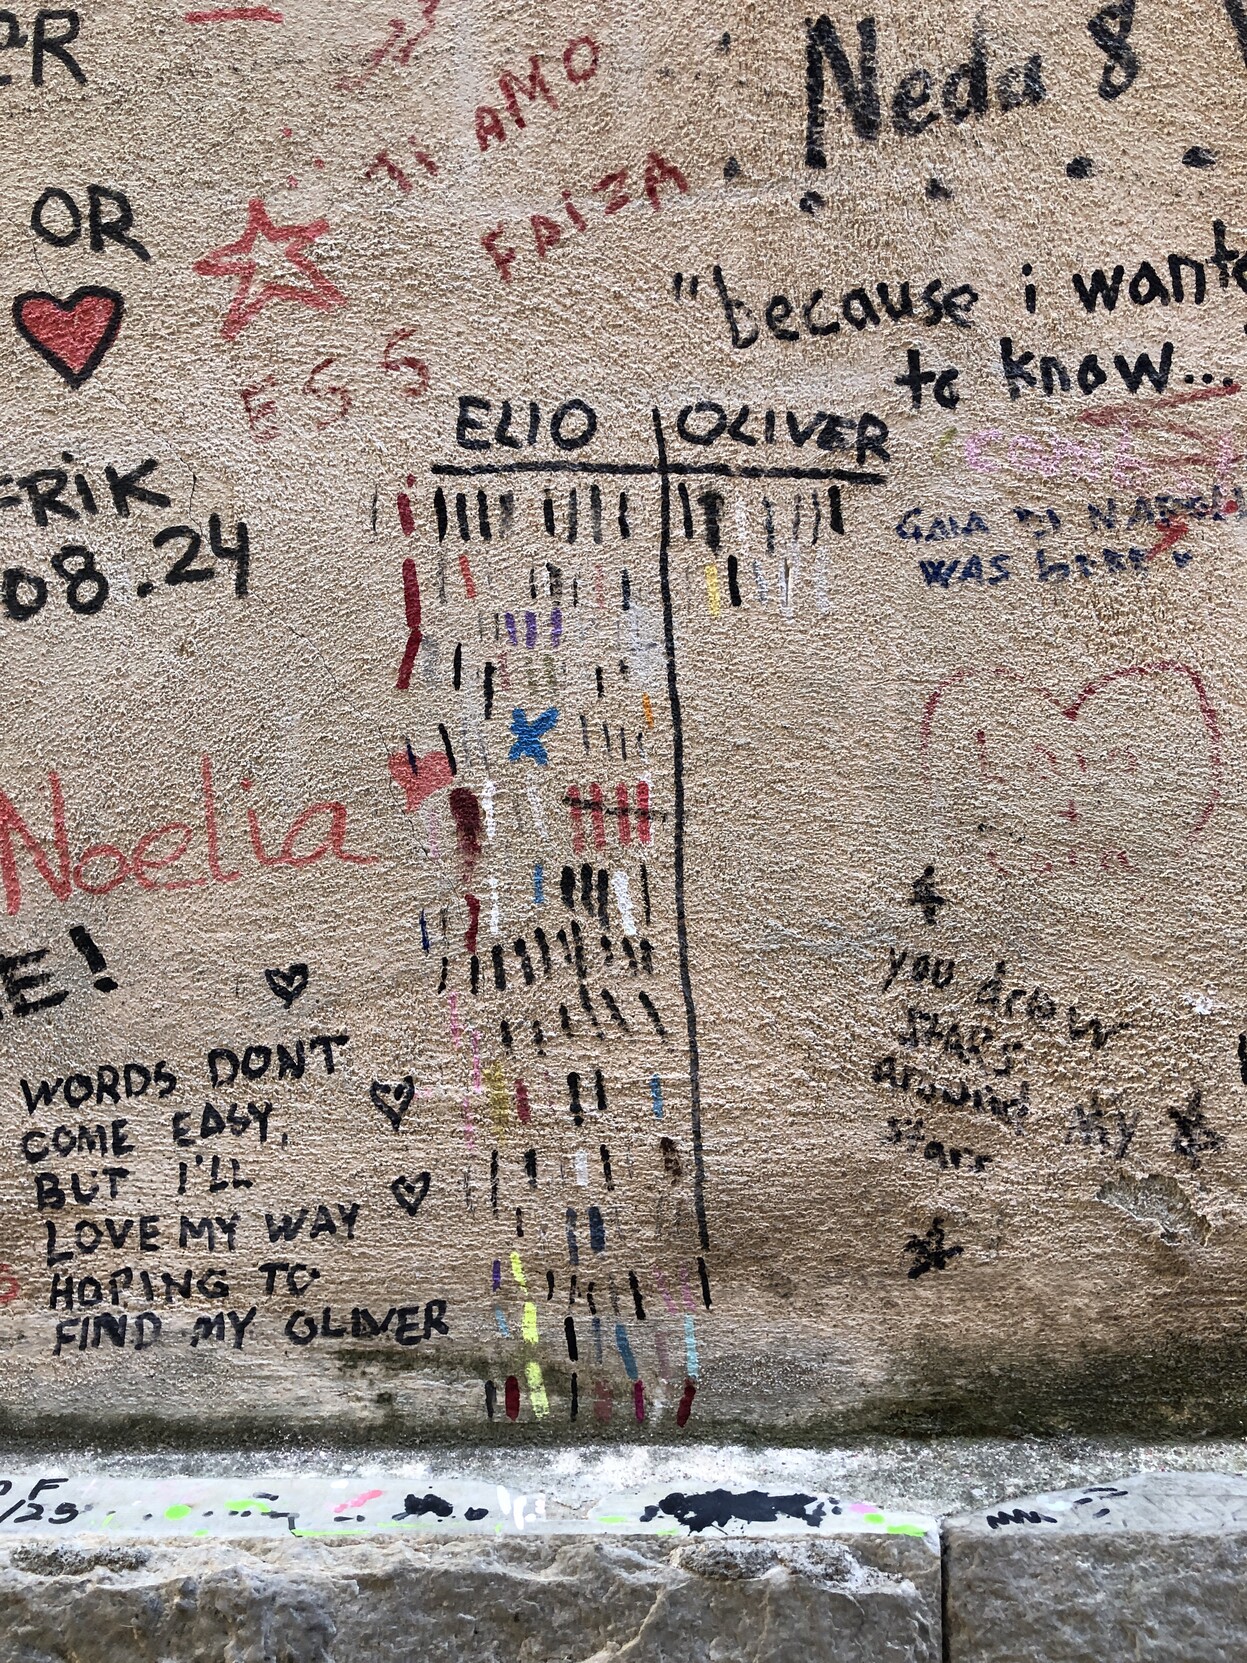 OR
TI AMO
FAiZA
Neda 8
"because i
to know...
ESS
ELIO OLIVER
08.24
WAS
Noelia
E!
WORDS DONT
COME EASY,
BUT I'LL
LOVE MY WAY
HOPING TO
FIND MY OLIVER
you drew
stars
around my
scars
/25